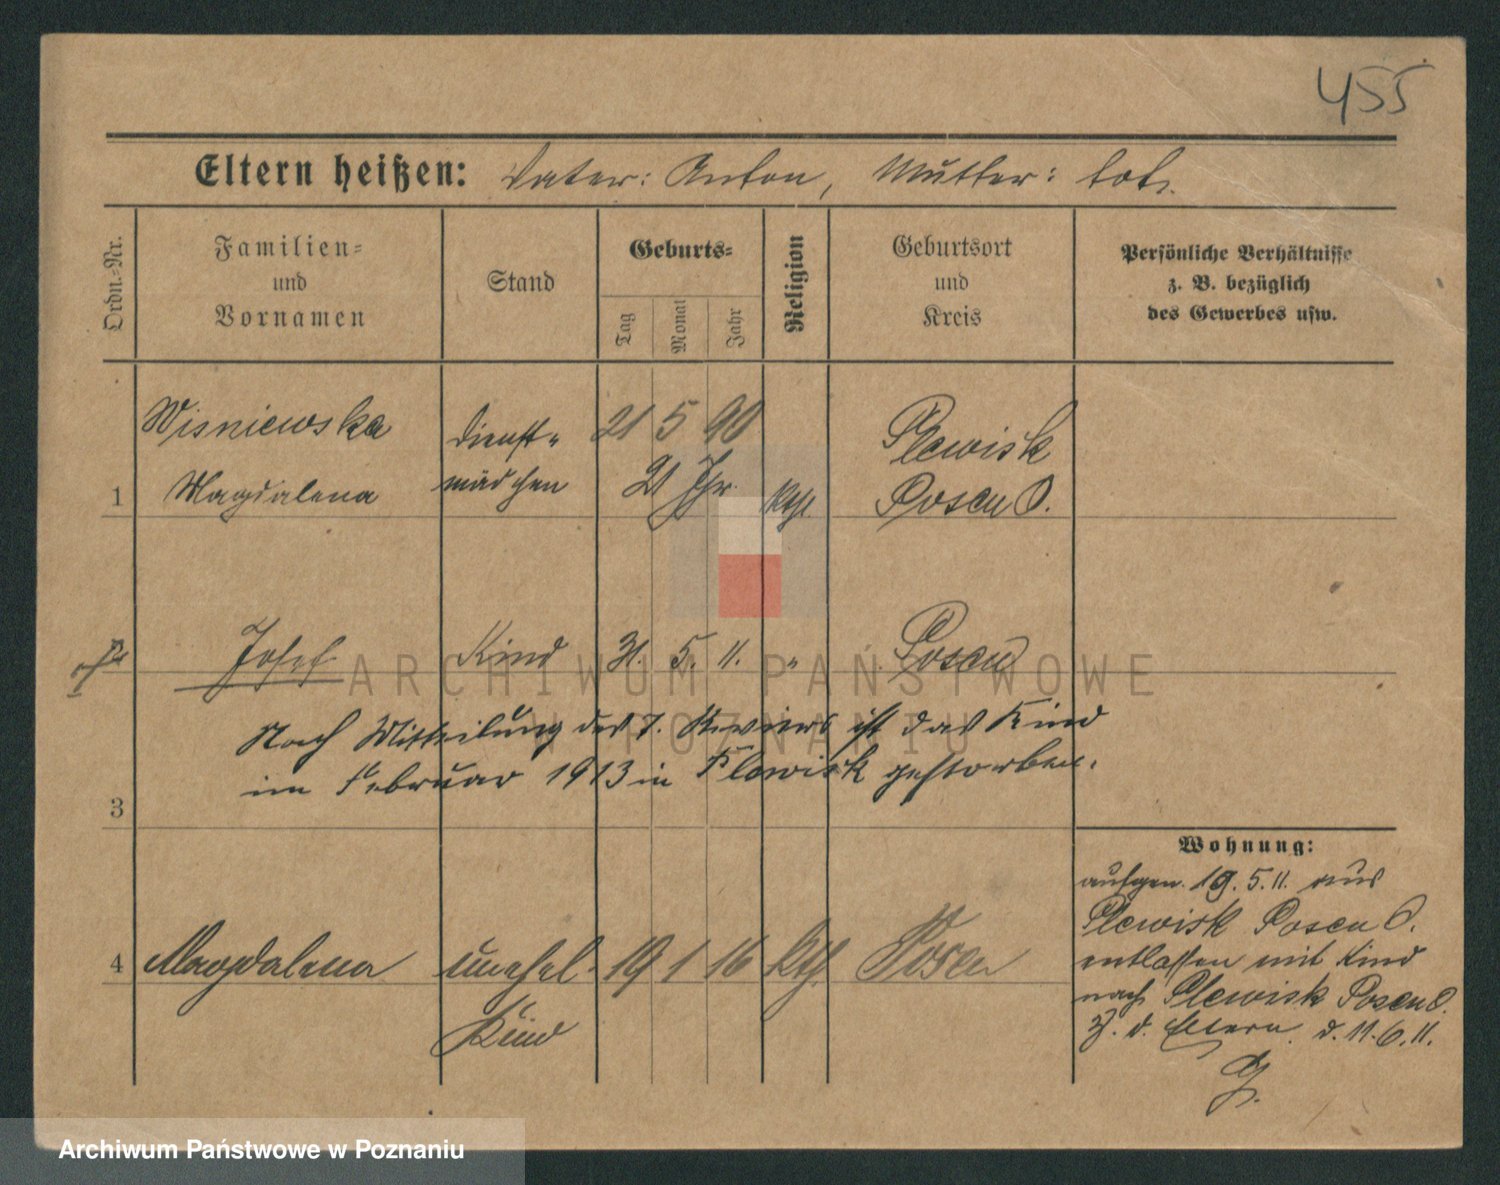 455
Eltern heißen: Vater: Anton, Mutter: tot.
Ordn.-Nr.
Familien-
und
Vornamen
Stand
Geburts-
Tag
Monat
Jahr
Religion
Geburtsort
und
Kreis
Persönliche Verhältnisse
z. B. bezüglich
des Gewerbes usw.
Wisniewska
Magdalena
Dienst-
mädchen
21 5 90
21 Jhr.
kth.
Plewisk
Posen O.
1
Josef Kind 31. 5. 11. " Posen
Nach Mitteilung des 7. Reviers ist das Kind
im Februar 1913 in Plewisk gestorben.
3
4 Magdalena unehel. 19 1 16 kth. Posen
Kind
Wohnung:
aufgen. 19. 5. 11. aus
Plewisk Posen O.
entlassen mit Kind
nach Plewisk Posen O.
z. d. Eltern. d. 11. 6. 11.
ARCHIWUM PAŃSTWOWE
W POZNANIU
Archiwum Państwowe w Poznaniu